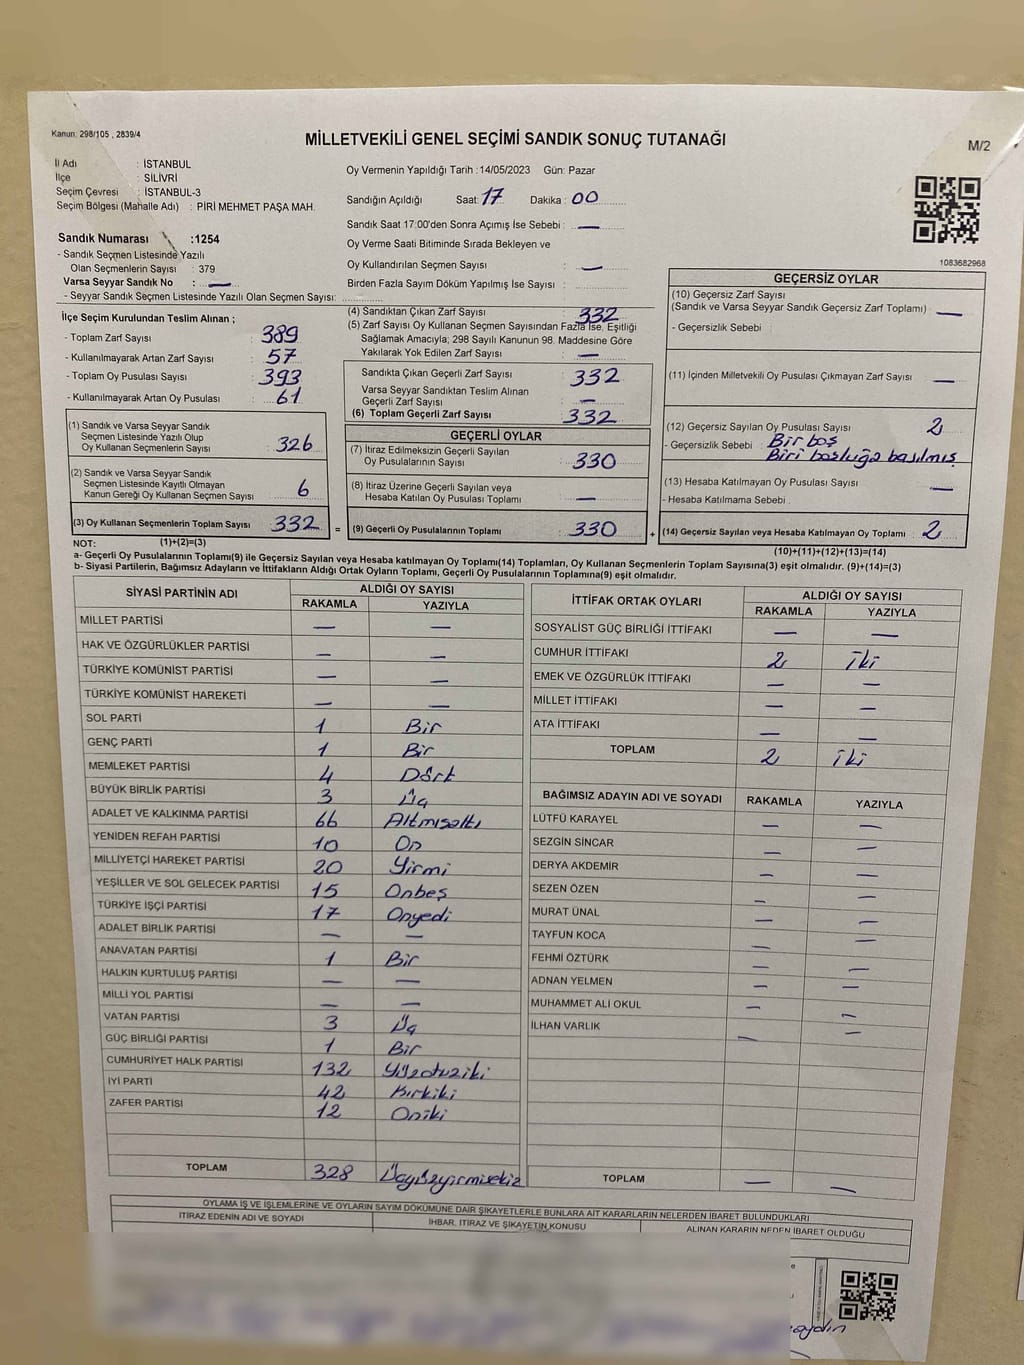 Kanun: 298/105 , 2839/4
MİLLETVEKİLİ GENEL SEÇİMİ SANDIK SONUÇ TUTANAĞI
M/2
İl Adı : İSTANBUL
İlçe : SİLİVRİ
Seçim Çevresi : İSTANBUL-3
Seçim Bölgesi (Mahalle Adı) : PİRİ MEHMET PAŞA MAH.
Oy Vermenin Yapıldığı Tarih : 14/05/2023 Gün: Pazar
Sandığın Açıldığı Saat: 17 Dakika : 00
Sandık Saat 17:00'den Sonra Açımış İse Sebebi : —
Oy Verme Saati Bitiminde Sırada Bekleyen ve
Oy Kullandırılan Seçmen Sayısı : —
Birden Fazla Sayım Döküm Yapılmış İse Sayısı :
1083682968
Sandık Numarası :1254
- Sandık Seçmen Listesinde Yazılı
Olan Seçmenlerin Sayısı : 379
Varsa Seyyar Sandık No : —
- Seyyar Sandık Seçmen Listesinde Yazılı Olan Seçmen Sayısı:
İlçe Seçim Kurulundan Teslim Alınan ;
- Toplam Zarf Sayısı : 389
- Kullanılmayarak Artan Zarf Sayısı : 57
- Toplam Oy Pusulası Sayısı : 393
- Kullanılmayarak Artan Oy Pusulası : 61
(1) Sandık ve Varsa Seyyar Sandık
Seçmen Listesinde Yazılı Olup
Oy Kullanan Seçmenlerin Sayısı : 326
(2) Sandık ve Varsa Seyyar Sandık
Seçmen Listesinde Kayıtlı Olmayan
Kanun Gereği Oy Kullanan Seçmen Sayısı : 6
(3) Oy Kullanan Seçmenlerin Toplam Sayısı : 332 =
(1)+(2)=(3)
(4) Sandıktan Çıkan Zarf Sayısı : 332
(5) Zarf Sayısı Oy Kullanan Seçmen Sayısından Fazla İse, Eşitliği
Sağlamak Amacıyla; 298 Sayılı Kanunun 98. Maddesine Göre
Yakılarak Yok Edilen Zarf Sayısı : —
Sandıkta Çıkan Geçerli Zarf Sayısı : 332
Varsa Seyyar Sandıktan Teslim Alınan
Geçerli Zarf Sayısı : —
(6) Toplam Geçerli Zarf Sayısı : 332
GEÇERLİ OYLAR
(7) İtiraz Edilmeksizin Geçerli Sayılan
Oy Pusulalarının Sayısı : 330
(8) İtiraz Üzerine Geçerli Sayılan veya
Hesaba Katılan Oy Pusulası Toplamı : —
(9) Geçerli Oy Pusulalarının Toplamı : 330 +
GEÇERSİZ OYLAR
(10) Geçersiz Zarf Sayısı
(Sandık ve Varsa Seyyar Sandık Geçersiz Zarf Toplamı) : —
- Geçersizlik Sebebi :
(11) İçinden Milletvekili Oy Pusulası Çıkmayan Zarf Sayısı : —
(12) Geçersiz Sayılan Oy Pusulası Sayısı : 2
- Geçersizlik Sebebi : Bir boş
Biri boşluğa basılmış
(13) Hesaba Katılmayan Oy Pusulası Sayısı : —
- Hesaba Katılmama Sebebi :
(14) Geçersiz Sayılan veya Hesaba Katılmayan Oy Toplamı : 2
(10)+(11)+(12)+(13)=(14)
NOT:
a- Geçerli Oy Pusulalarının Toplamı(9) ile Geçersiz Sayılan veya Hesaba katılmayan Oy Toplamı(14) Toplamları, Oy Kullanan Seçmenlerin Toplam Sayısına(3) eşit olmalıdır. (9)+(14)=(3)
b- Siyasi Partilerin, Bağımsız Adayların ve İttifakların Aldığı Ortak Oyların Toplamı, Geçerli Oy Pusulalarının Toplamına(9) eşit olmalıdır.
SİYASİ PARTİNİN ADI ALDIĞI OY SAYISI
RAKAMLA YAZIYLA
MİLLET PARTİSİ — —
HAK VE ÖZGÜRLÜKLER PARTİSİ — —
TÜRKİYE KOMÜNİST PARTİSİ — —
TÜRKİYE KOMÜNİST HAREKETİ — —
SOL PARTİ 1 Bir
GENÇ PARTİ 1 Bir
MEMLEKET PARTİSİ 4 Dört
BÜYÜK BİRLİK PARTİSİ 3 Üç
ADALET VE KALKINMA PARTİSİ 66 Altmışaltı
YENİDEN REFAH PARTİSİ 10 On
MİLLİYETÇİ HAREKET PARTİSİ 20 Yirmi
YEŞİLLER VE SOL GELECEK PARTİSİ 15 Onbeş
TÜRKİYE İŞÇİ PARTİSİ 17 Onyedi
ADALET BİRLİK PARTİSİ — —
ANAVATAN PARTİSİ 1 Bir
HALKIN KURTULUŞ PARTİSİ — —
MİLLİ YOL PARTİSİ — —
VATAN PARTİSİ 3 Üç
GÜÇ BİRLİĞİ PARTİSİ 1 Bir
CUMHURİYET HALK PARTİSİ 132 Yüzotuziki
İYİ PARTİ 42 Kırkiki
ZAFER PARTİSİ 12 Oniki
TOPLAM 328 Üçyüzyirmisekiz
İTTİFAK ORTAK OYLARI ALDIĞI OY SAYISI
RAKAMLA YAZIYLA
SOSYALİST GÜÇ BİRLİĞİ İTTİFAKI — —
CUMHUR İTTİFAKI 2 iki
EMEK VE ÖZGÜRLÜK İTTİFAKI — —
MİLLET İTTİFAKI — —
ATA İTTİFAKI — —
TOPLAM 2 iki
BAĞIMSIZ ADAYIN ADI VE SOYADI RAKAMLA YAZIYLA
LÜTFÜ KARAYEL — —
SEZGİN SİNCAR — —
DERYA AKDEMİR — —
SEZEN ÖZEN — —
MURAT ÜNAL — —
TAYFUN KOCA — —
FEHMİ ÖZTÜRK — —
ADNAN YELMEN — —
MUHAMMET ALİ OKUL — —
İLHAN VARLIK — —
TOPLAM — —
OYLAMA İŞ VE İŞLEMLERİNE VE OYLARIN SAYIM DÖKÜMÜNE DAİR ŞİKAYETLERLE BUNLARA AİT KARARLARIN NELERDEN İBARET BULUNDUKLARI
İTİRAZ EDENİN ADI VE SOYADI İHBAR, İTİRAZ VE ŞİKAYETİN KONUSU ALINAN KARARIN NEDEN İBARET OLDUĞU